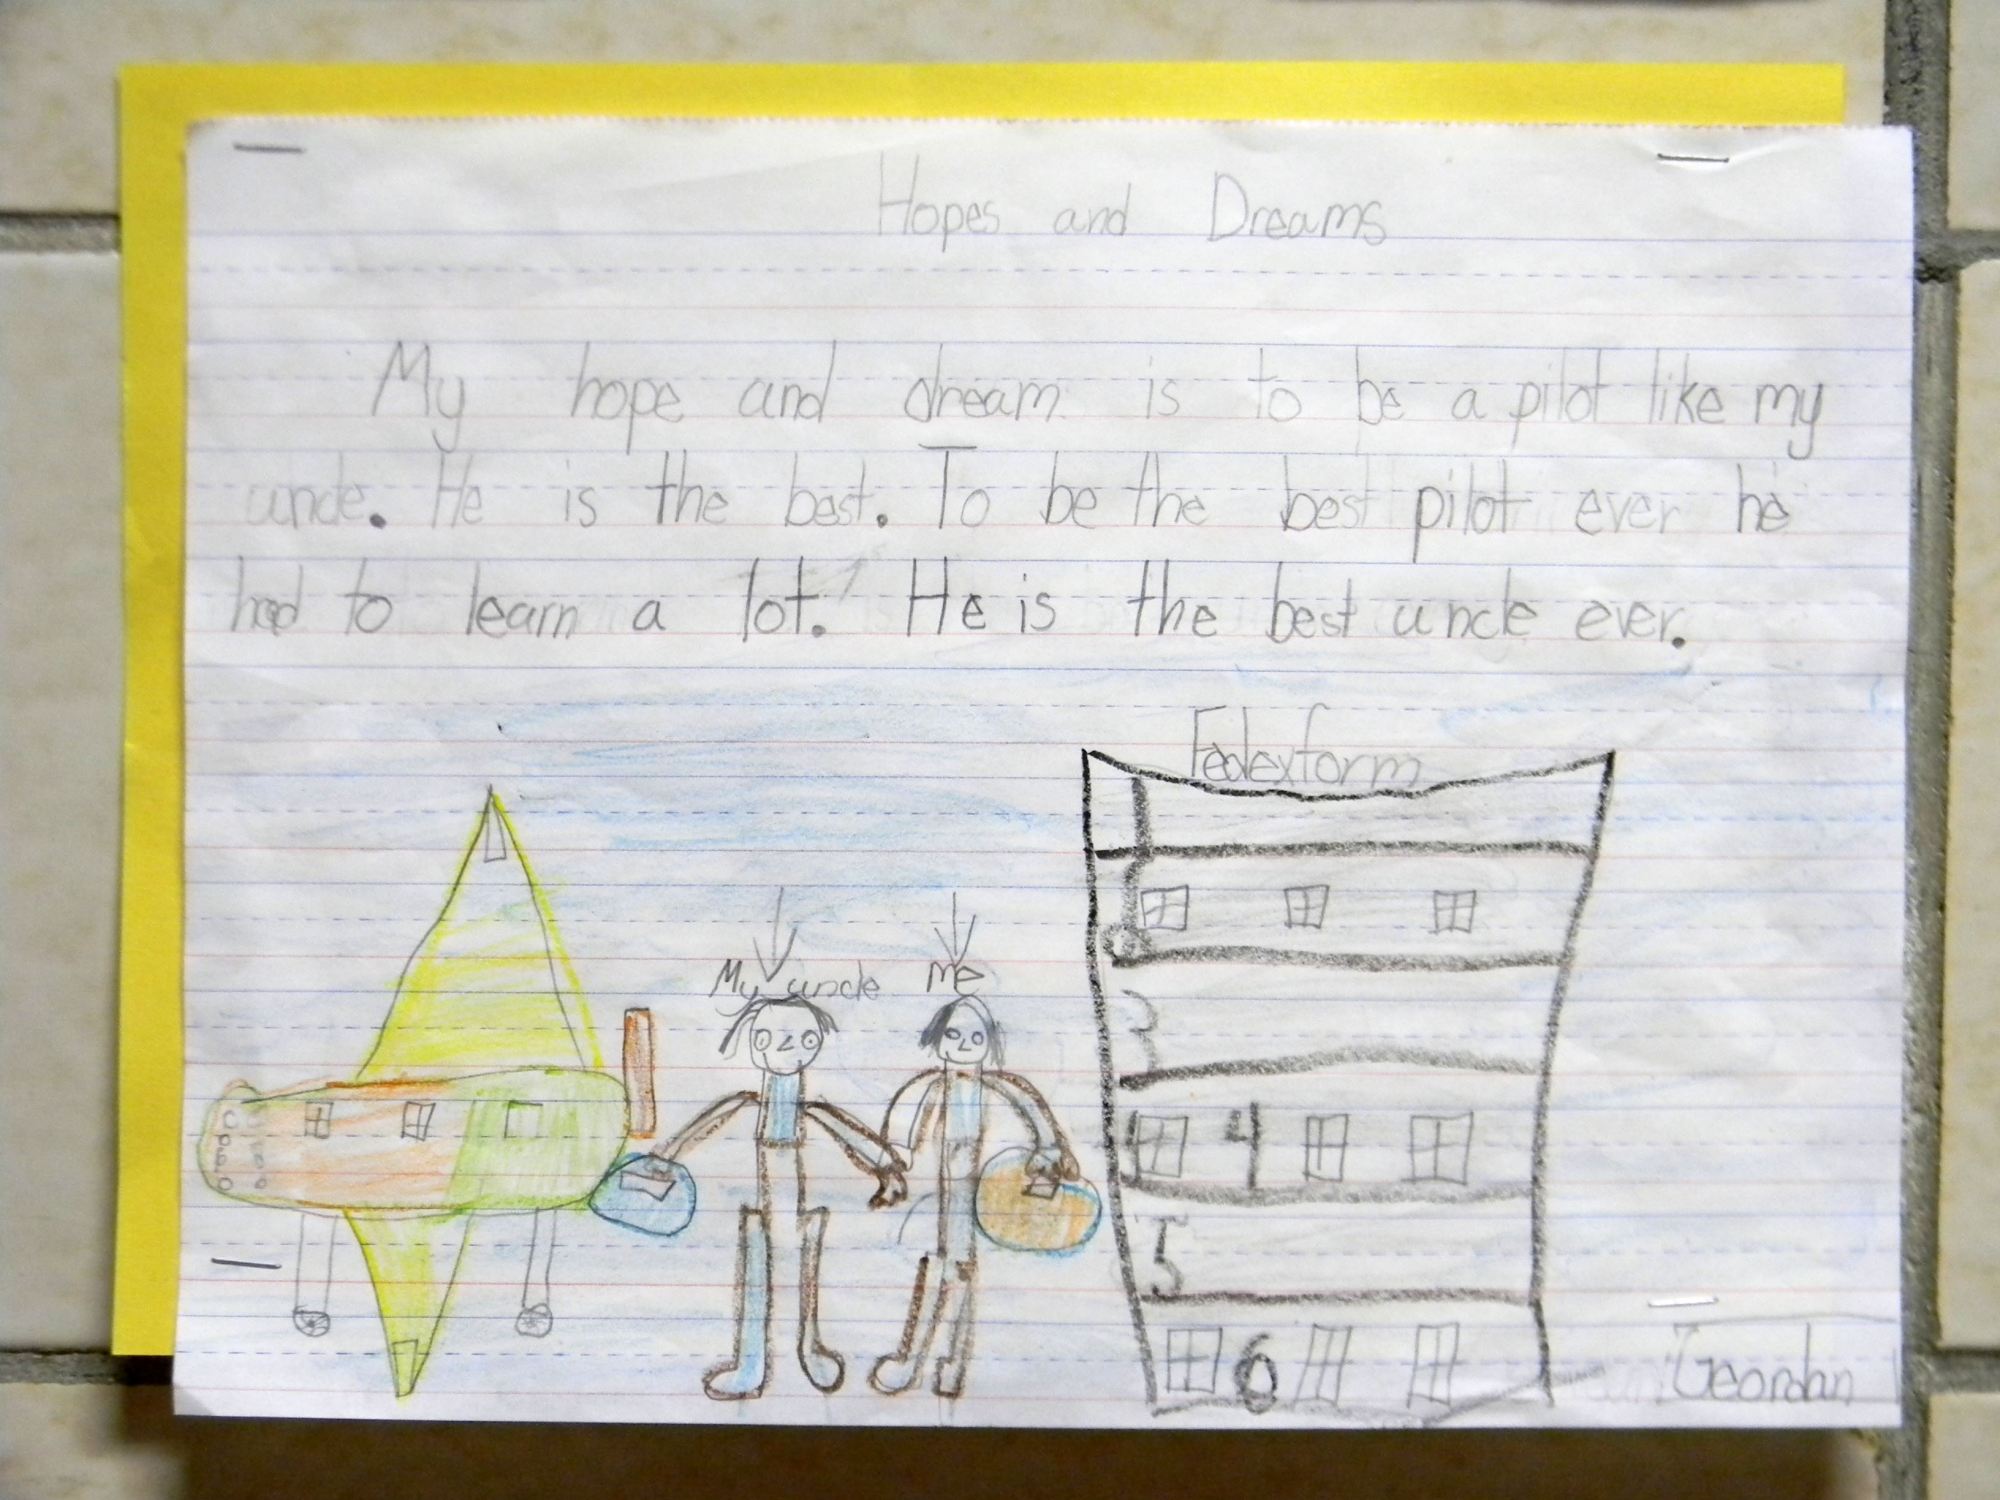 Hopes and Dreams
My hope and dream is to be a pilot like my
uncle. He is the best. To be the best pilot ever he
had to learn a lot. He is the best uncle ever.
Fedexform
1
My uncle
me
3
4 4
5
6
Geordan